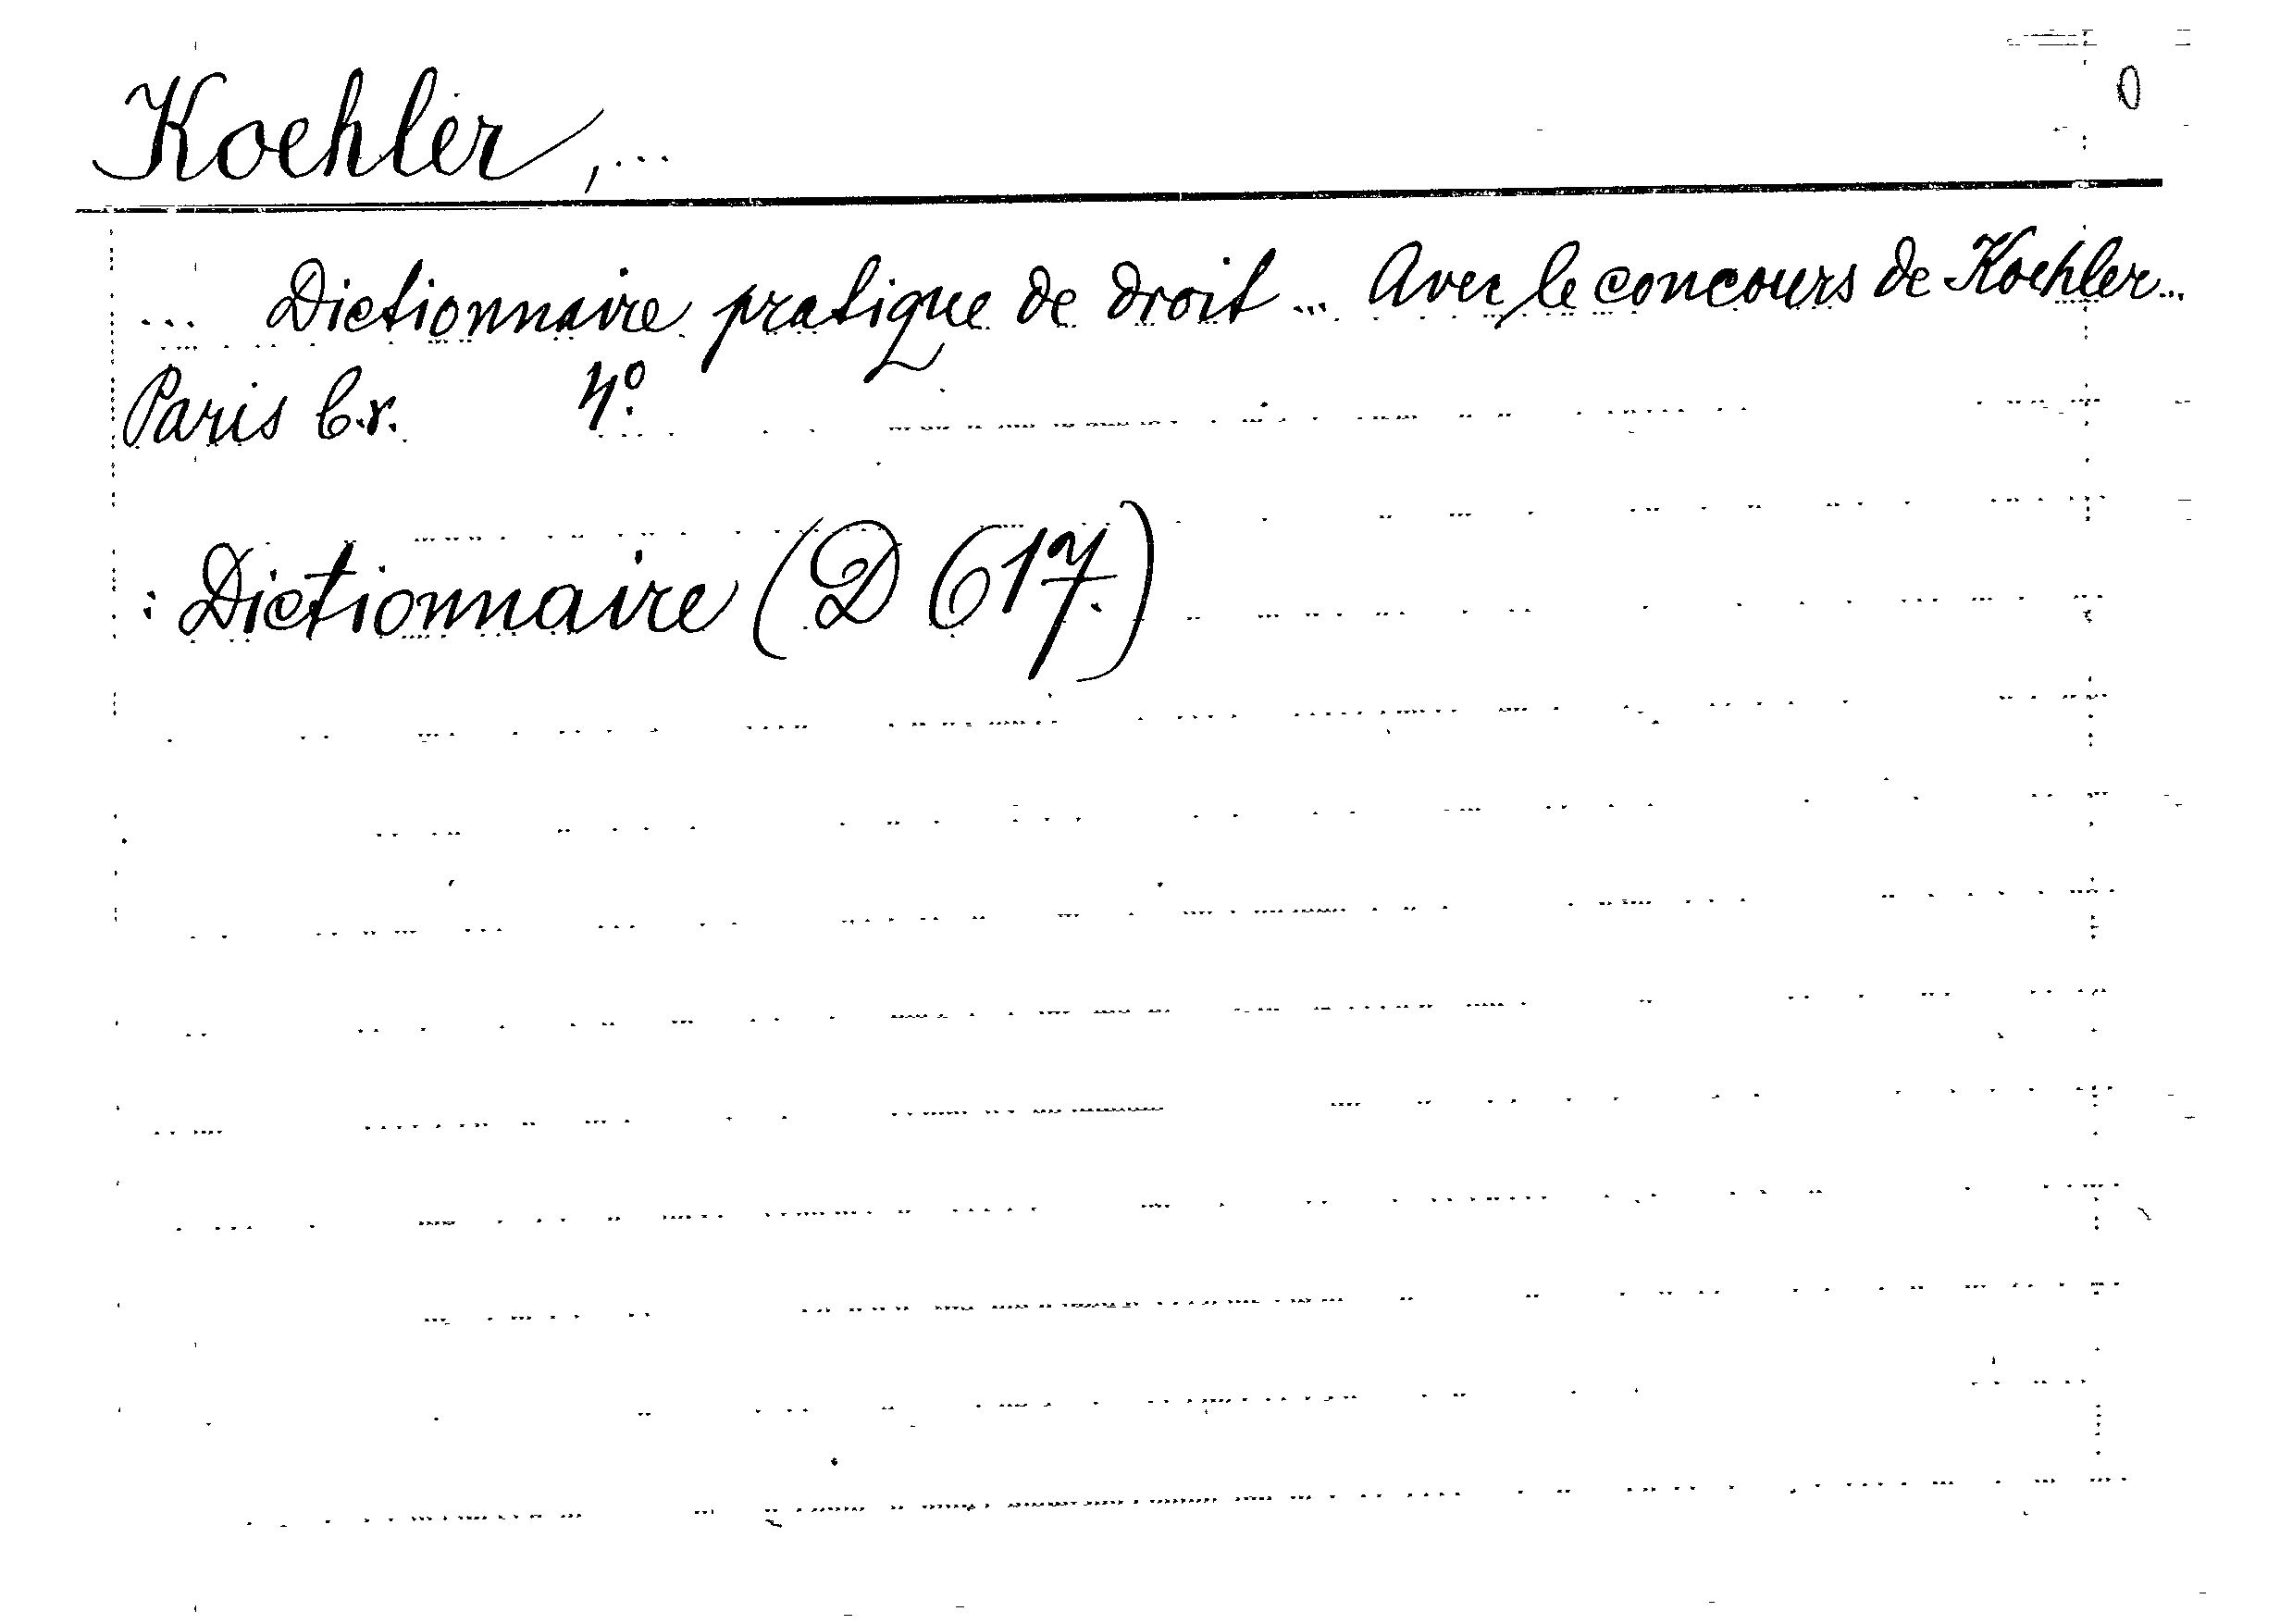 0
Koehler, ...
... Dictionnaire pratique de droit ... Avec le concours de Koehler...
Paris b.r. 4°.
: Dictionnaire (D 617.)